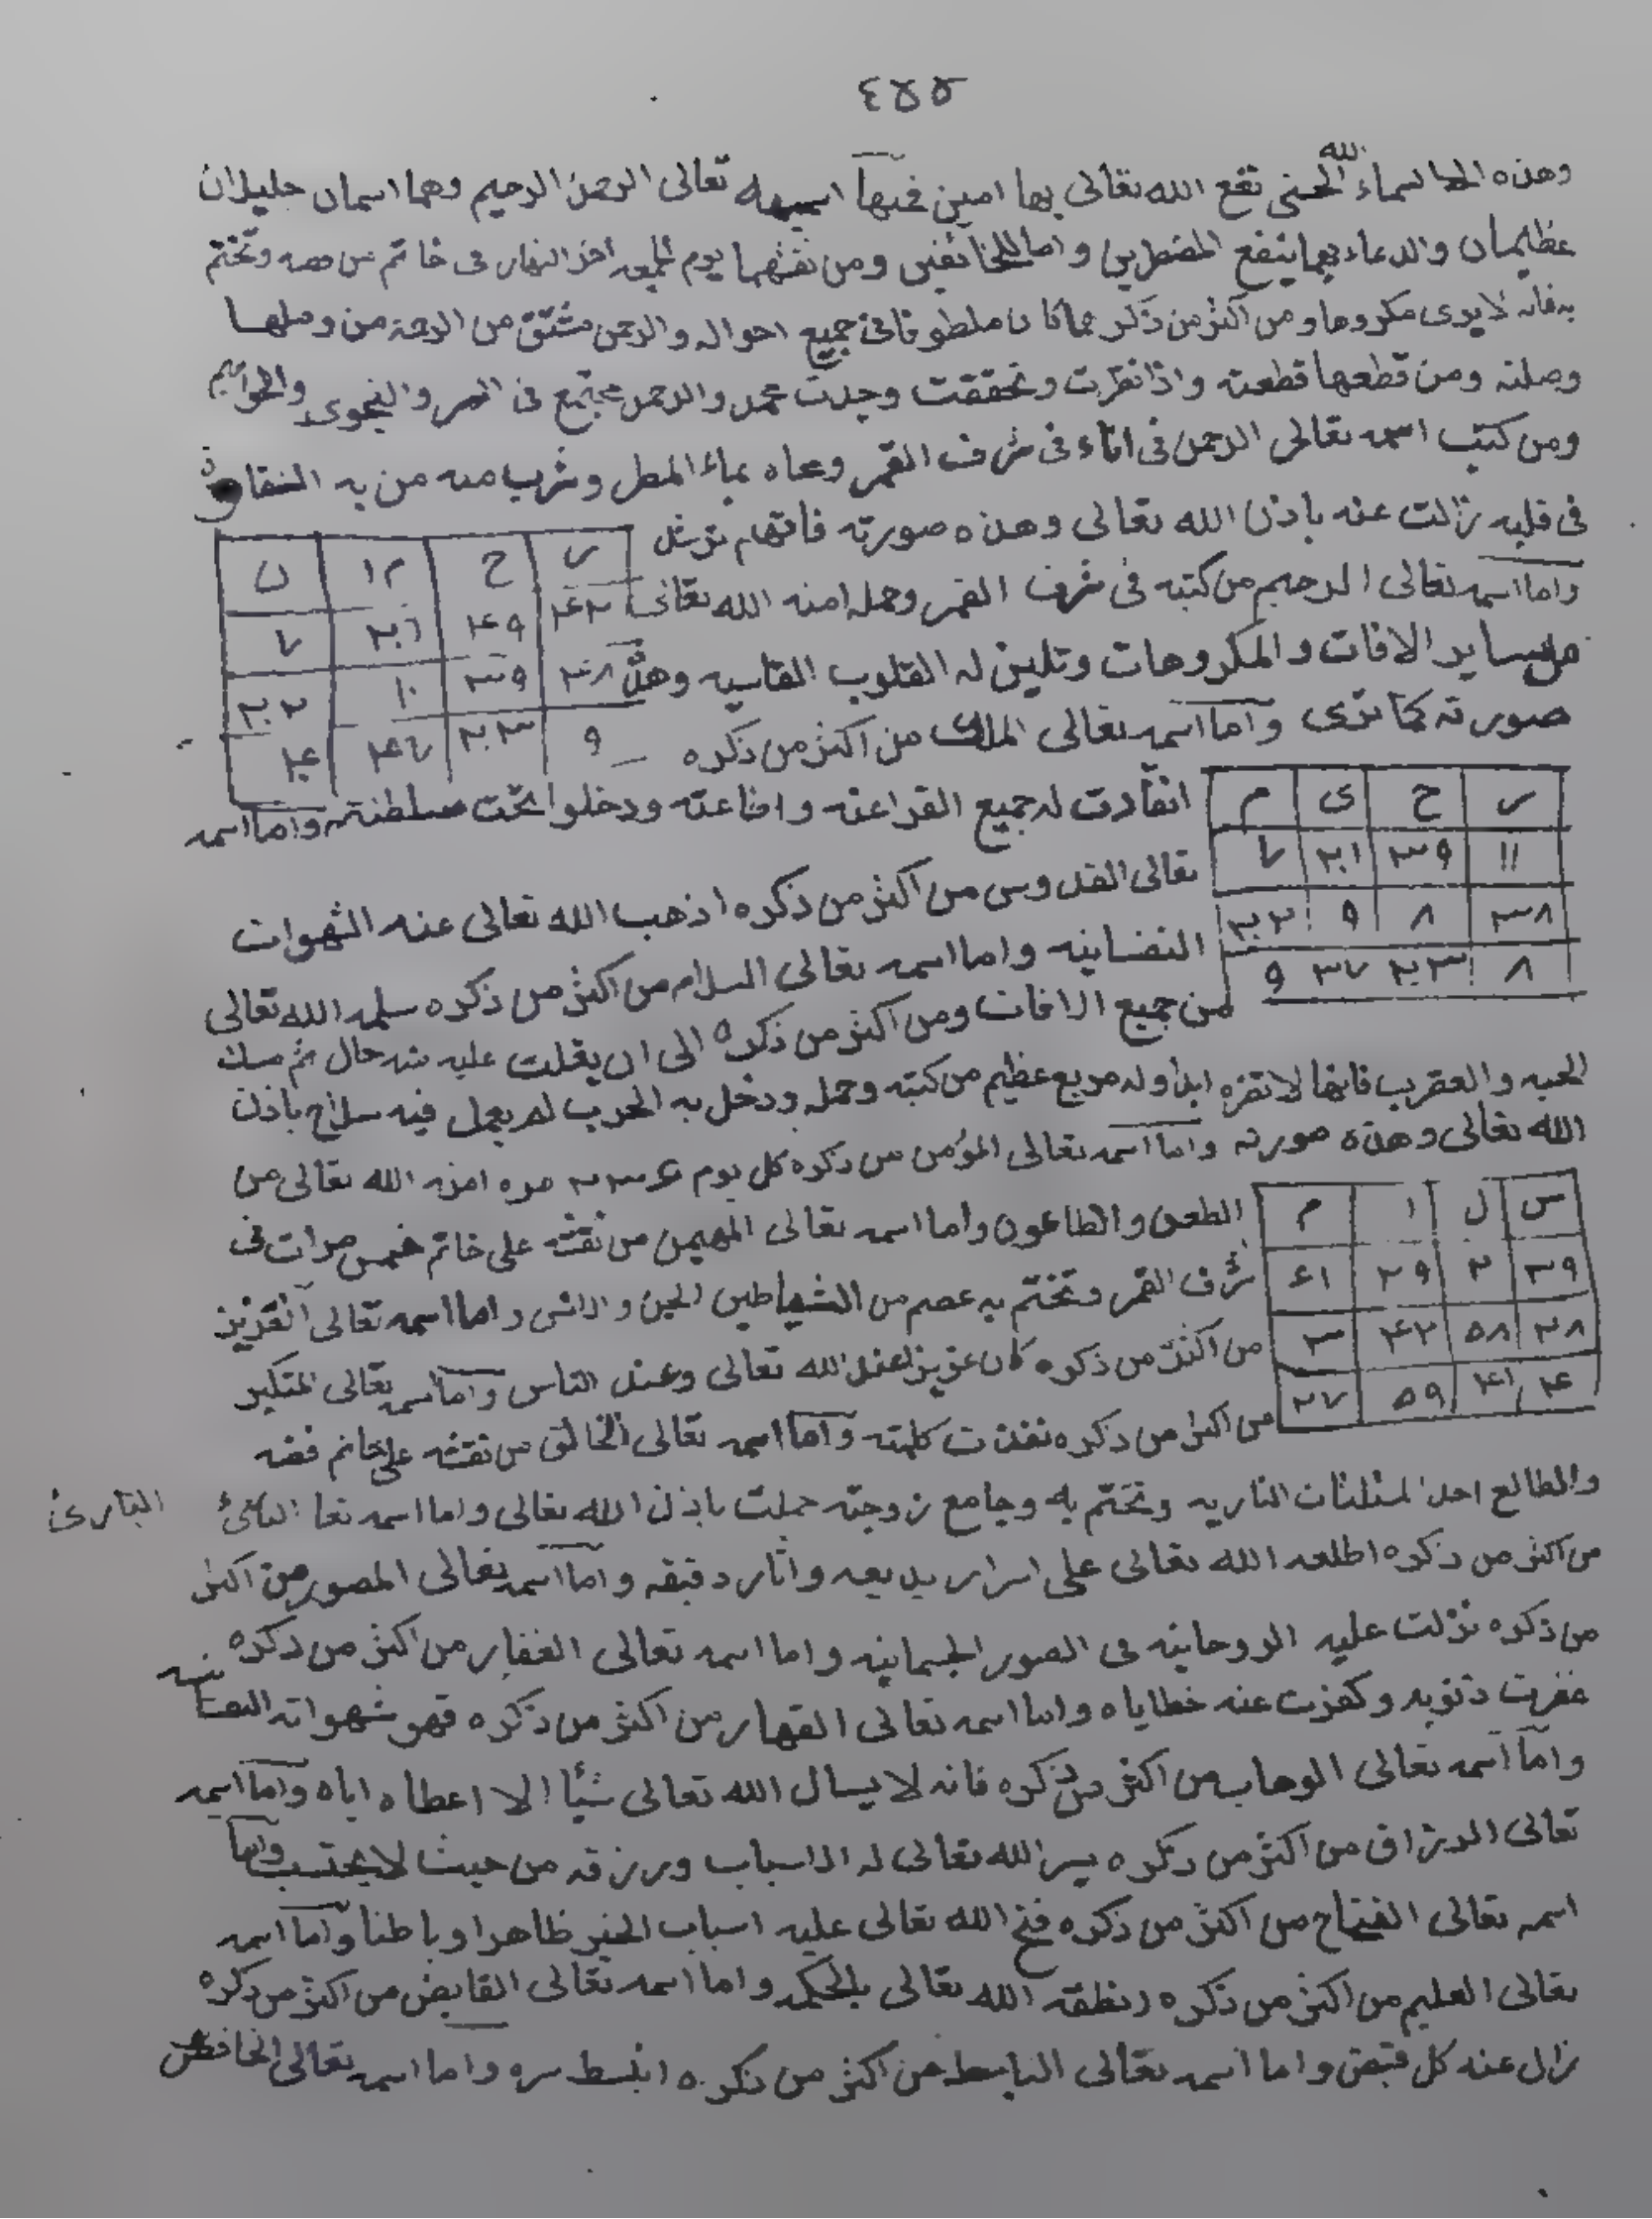 ٤٥٥
وهذه الاسماء الحسنى نفع الله تعالى بها امين فمنها اسمه تعالى الرحمن الرحيم وهما اسمان جليلان
لله
عظيمان والدعاء بهما ينفع المضطرين واما للخائفين ومن نقشهما يوم الجمعه اخر النهار فى خاتم من فضه وتختم
به فانه لا يرى مكروها ومن اكثر من ذكرهما كان ملطوفا فى جميع احواله والرحمن مشتق من الرحمة من وصلها
وصلته ومن قطعها قطعته واذا نظرت وتحققت وجدت محمد والرحمن مجتمع فى السر والنجوى والحواميم
ومن كتب اسمه تعالى الرحمن فى اناء فى شرف القمر ومحاه بماء المطر وشرب منه من به الشقاوة
فى قلبه زالت عنه باذن الله تعالى وهذه صورته فافهم ترشد
ر ح ما ن
واما اسمه تعالى الرحيم من كتبه فى شرف القمر وحمله امنه الله تعالى
٤٢ ٤٩ ٢٠٦ ٧
من ساير الافات والمكروهات وتلين له القلوب القاسيه وهذه
٤٨ ٣٩ ١٠ ٢٠٢
صورته كما ترى واما اسمه تعالى الملك من اكثر من ذكره
٩ ٢٠٣ ٤٧ ٤٠
انقادت له جميع الفراعنه واطاعته ودخلوا تحت سلطنته واما اسمه
ر ح ى م
تعالى القدوس من اكثر من ذكره اذهب الله تعالى عنه الشهوات
١١ ٣٩ ٢٠١ ٧
النفسانيه واما اسمه تعالى السلام من اكثر من ذكره سلمه الله تعالى
٣٨ ٨ ٩ ٢٠٢
من جميع الافات ومن اكثر من ذكره الى ان يغلب عليه منه حال ثم مسك
٨ ٢٠٣ ٣٧ ٩
الحيه والعقرب فانها لا تضره ابدا وله مربع عظيم من كتبه وحمله ودخل به الحرب لم يعمل فيه سلاح باذن
الله تعالى وهذه صورته واما اسمه تعالى المؤمن من ذكره كل يوم مره امنه الله تعالى من
س ل ا م
الطعن والطاعون واما اسمه تعالى المهيمن من نقشه على خاتم خمس مرات فى
٣٩ ٢ ٢٩ ٦١
شرف القمر وتختم به عصم من الشياطين الجن والانس واما اسمه تعالى العزيز
٢٨ ٥٨ ٤٢ ٣
من اكثر من ذكره كان عزيزا عند الله تعالى وعند الناس واما اسمه تعالى المتكبر
٤ ٤١ ٥٩ ٢٧
من اكثر من ذكره نفذت كلمته واما اسمه تعالى الخالق من نقشه على خاتم فضه
والطالع احد المثلثات الناريه وتختم به وجامع زوجته حملت باذن الله تعالى واما اسمه تعا البارئ
البارئ
من اكثر من ذكره اطلعه الله تعالى على اسرار بديعه واثار دقيقه واما اسمه تعالى المصور من اكثر
من ذكره نزلت عليه الروحانيه فى الصور الجسمانيه واما اسمه تعالى الغفار من اكثر من ذكره
غفرت ذنوبه وكفرت عنه خطاياه واما اسمه تعالى القهار من اكثر من ذكره قهر شهواته النفسانيه
واما اسمه تعالى الوهاب من اكثر من ذكره فانه لا يسال الله تعالى شيأ الا اعطاه اياه واما اسمه
تعالى الرزاق من اكثر من ذكره يسر الله تعالى له الاسباب ورزقه من حيث لا يحتسب واما
اسمه تعالى الفتاح من اكثر من ذكره فتح الله تعالى عليه اسباب الخير ظاهرا وباطنا واما اسمه
تعالى العليم من اكثر من ذكره انطقه الله تعالى بالحكمه واما اسمه تعالى القابض من اكثر من ذكره
زال عنه كل قبض واما اسمه تعالى الباسط من اكثر من ذكره انبسط سره واما اسمه تعالى الخافض